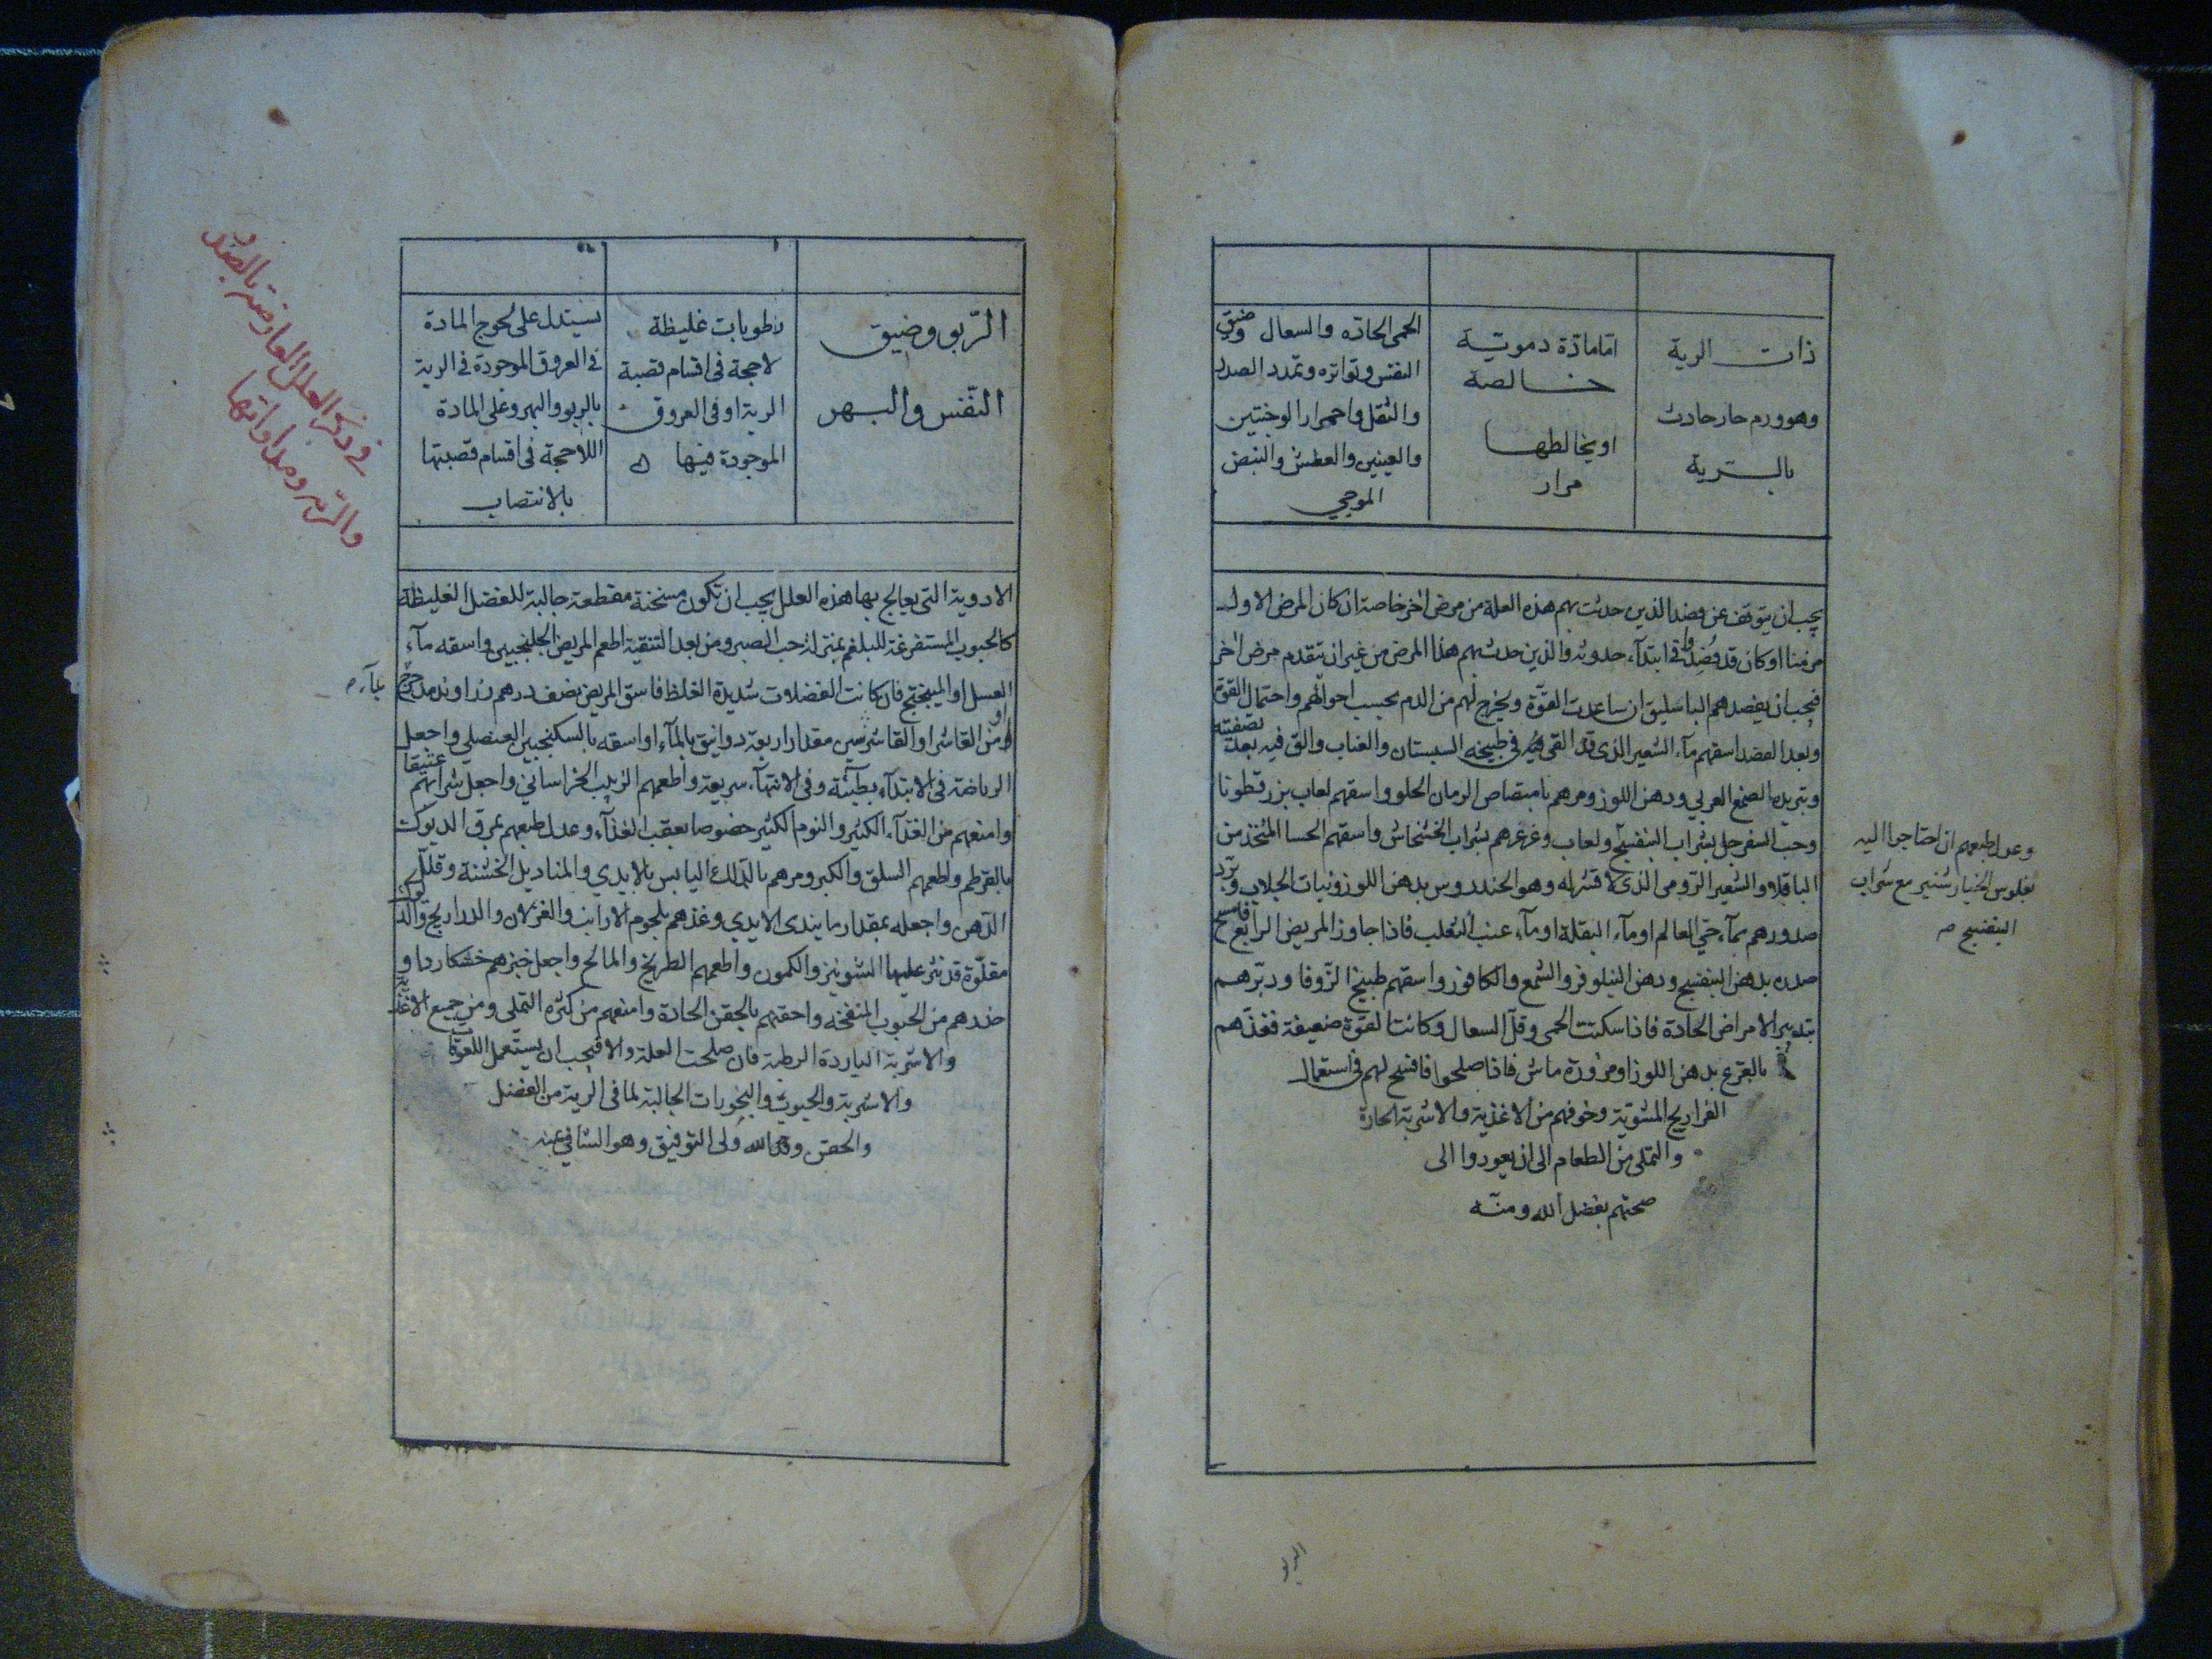 ذات الرية
وهو ورم حار حادث
بالرية
اما مادة دموية
خالصة
او يخالطها
مرار
الحمى الحادّه والسعال وضيق
النفس وتواتره وتمدد الصدر
والثقل واحمرار الوجنتين
والعينين والعطش والنبض
الموجي
يجب ان يتوقف عن فصد الذين حدثت بهم هذه العلة من مرض اخر خاصة ان كان المرض الاول
مزمنا او كان قد فُصِد في ابتدآء حدوثه والذين حدث بهم هذا المرض من غير ان يتقدم مرض اخر
فيجب ان يفصدهم الباسليق ان ساعدت القوّة ويخرج لهم من الدم بحسب احوالهم واحتمال القوة
وبعد الفصد اسقهم مآء الشعير الذى قد القى في طبيخه السبستان والعناب والق فيه بعد تصفيته
وتبريده الصمغ العربي ودهن اللوز ومرهم بامتصاص الرمان الحلو واسقهم لعاب بزر قطونا
وحب السفرجل بشراب البنفسج ولعاب وغرغرهم بشراب الخشخاش واسقهم الحسا المتخذ من
الباقلا والشعير الرّومى الذى لا قشر له وهو الخندروس بدهن اللوز وفتات الجلاب وبرّد
صدورهم بمآء حيّ العالم او مآء البقلة او مآء عنب الثعلب فاذا جاوز المريض الرابع فامسح
صدره بدهن البنفسج ودهن النيلوفر والشمع والكافور واسقهم طبيخ الزّوفا ودبّرهم
بتدبير الامراض الحادة فاذا سكنت الحمى وقلّ السعال وكانت القوّة ضعيفة فغذّهم
بالقرع بدهن اللوز او مزورة ماش فاذا صلحوا فافسح لهم في استعمال
الفراريج المشويّة وخوفهم من الاغذية والاشربة الحارة
والتملى من الطعام الى ان يعودوا الى
صحتهم بفضل الله ومنّه
وعدل طبعهم ان احتاجوا اليه
بفلوس الخيار شنبر مع شراب
البنفسج صح
في ذكر العلل العارضة بالصدر
والرّية ومداواتها
الرّبو وضيق
النّفس والبهر
رطوبات غليظة
لاحجة في اقسام قصبة
الرية او فى العروق
الموجودة فيها
يستدل على لحوج المادة
في العروق الموجودة في الرية
بالربو والبهر وعلى المادة
اللاحجة في اقسام قصبتها
بالانتصاب
الادوية التى يعالج بها هذه العلل يجب ان تكون مسخنة مقطعة جالبة للفضل الغليظة
كالحبوب المستفرغة للبلغم بمنزلة حب الصبر ومن بعد التنقية اطعم المريض الجلنجبين واسقه مآء
العسل او الميبختج فان كانت الفضلات شديدة الغلظ فاسق المريض نصف درهم زراوند مدحرج
او من القاشرا او القاشرسين مقدار اربعة دوانيق بالمآء او اسقه بالسكنجبين العنصلي واجعل
الرياضة في الابتدآء بطيئة وفي الانتهآء سريعة واطعمهم الزبيب الخراساني واجعل شرابهم عتيقا
وامنعهم من الغذآء الكثير والنوم الكثير خصوصا بعقب الغذآء وعدل طبعهم بمرق الديوك
بالقرطم واطعمهم السلق والكبر ومرهم بالدلك اليابس بالايدي والمناديل الخشنة وقلل
الدّهن واجعله بمقدار ما يندى الايدي وغذهم بلحوم الارانب والغزلان والدراريج
مقلوّة قد نثر عليها الشونيز والكمون واطعمهم الطريخ والمالح واجعل خبزهم خشكاردا و
حذرهم من الحبوب المنفخه واحقنهم بالحقن الحادة وامنعهم من كثرة التملى ومن جميع الاغذية
والاشربة الباردة الرطبة فان صلحت العلة والا فيجب ان يستعمل اللعوقات
والاشربة والحبوب والبخورات الجالبة لما في الرية من الفضل
والحقن والله ولى التوفيق وهو الشافي بمنه